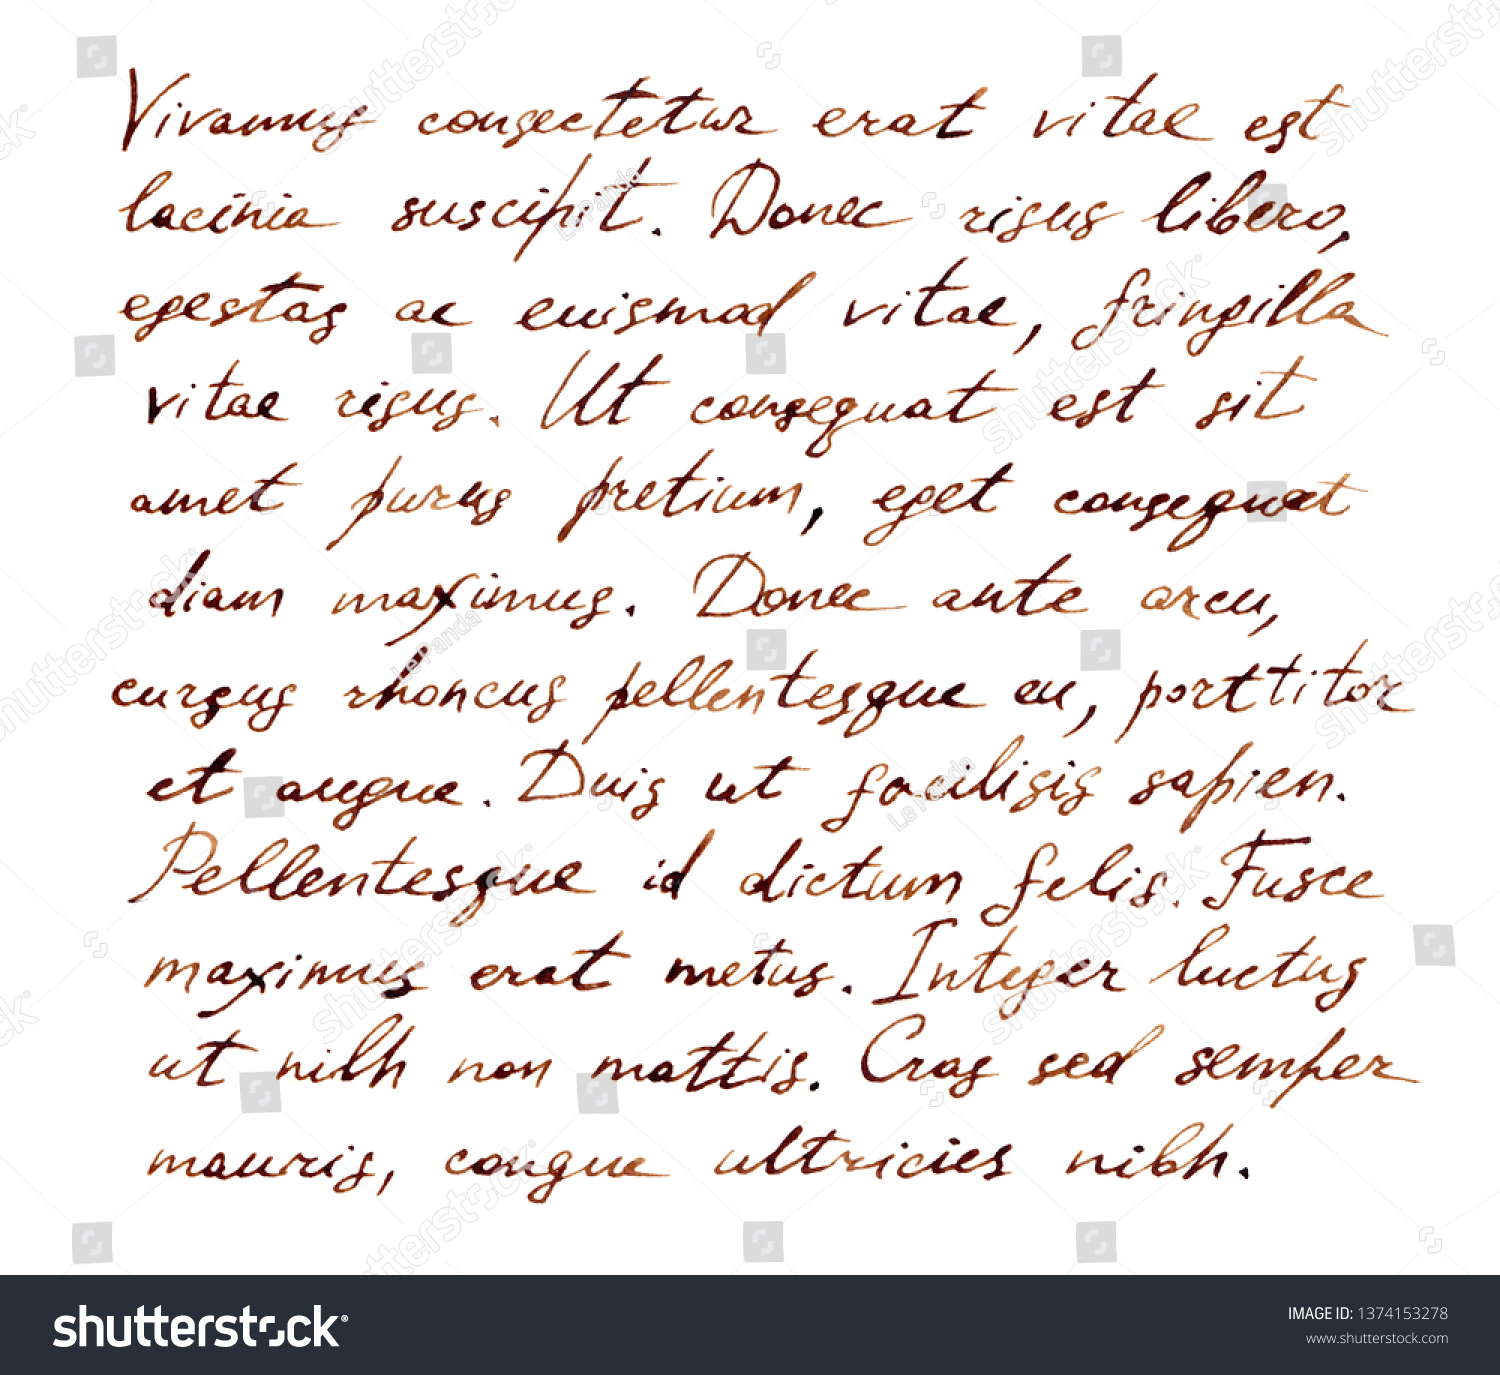 Vivamus consectetur erat vitae est
lacinia suscipit. Donec risus libero,
egestas ac euismod vitae, fringilla
vitae risus. Ut consequat est sit
amet purus pretium, eget consequat
diam maximus. Donec ante arcu,
cursus rhoncus pellentesque eu, porttitor
et augue. Duis ut facilisis sapien.
Pellentesque id dictum felis. Fusce
maximus erat metus. Integer luctus
ut nibh non mattis. Cras sed semper
mauris, congue ultricies nibh.
shutterstock
IMAGE ID: 1374153278
www.shutterstock.com
shutterstock
Le Panda